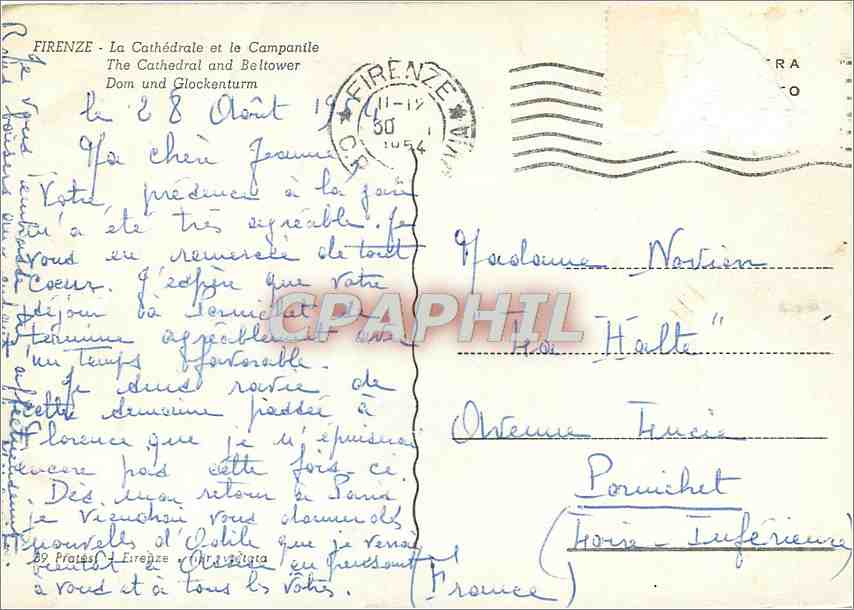 FIRENZE - La Cathédrale et le Campanile
The Cathedral and Beltower
Dom und Glockenturm
le 28 Août 1954
Ma chère Jeanne
Votre présence à la gare
m'a été très agréable. Je
vous en remercie de tout
cœur. J'espère que votre
séjour à Pornichet se
termine agréablement avec
un temps favorable.
Je suis ravie de
cette semaine passée à
Florence que je n'épuiserai
encore pas cette fois-ci.
Dès mon retour à Paris
je viendrai vous donner des
nouvelles d'Odile que je verrai
bientôt à en pensant
à vous et à tous les vôtres.
Je vous embrasse
bien affectueusement.
39 Pratesi - Firenze - ripr. vietata
FIRENZE
11-12
30
1954
Madame Novion
"La Halte"
Avenue Lucie
Pornichet
(Loire-Inférieure)
(France)
CPAPHIL